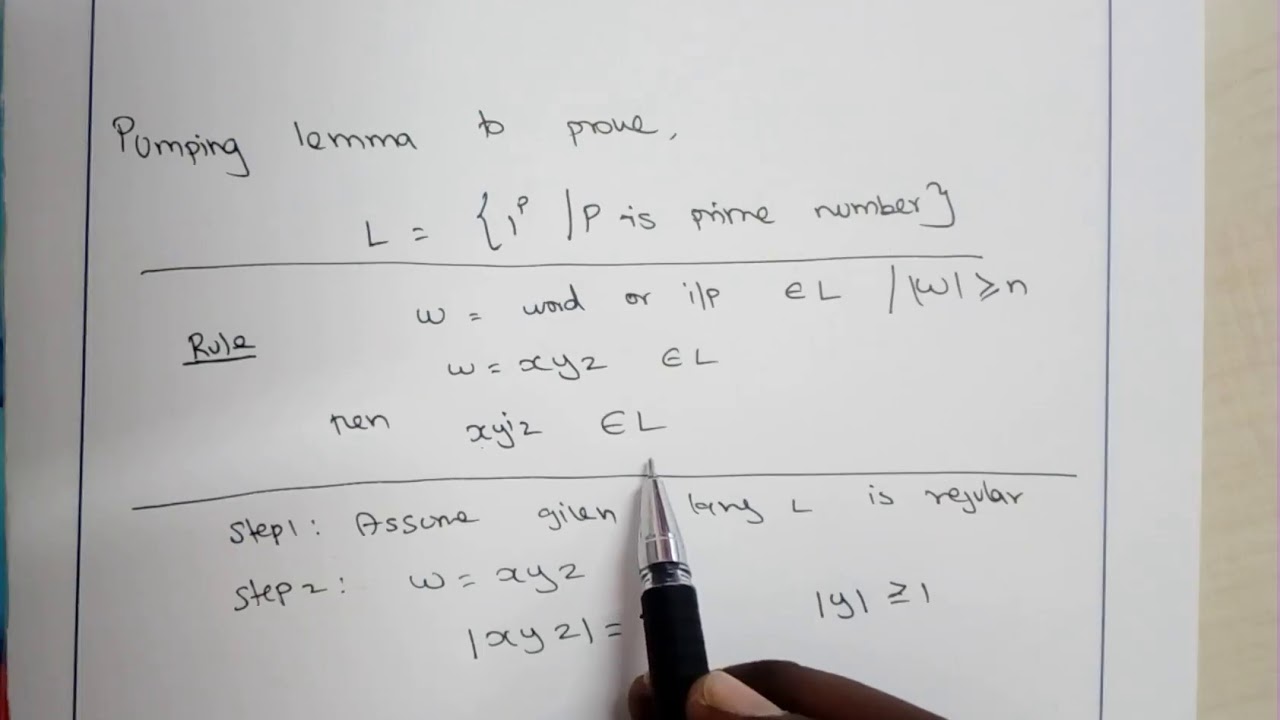 Pumping lemma to prove,
L = {1^p | P is prime number}
w = word or i/p ∈ L / |w| ≥ n
Rule
w = xyz ∈ L
then xy^iz ∈ L
Step1: Assume given lang L is regular
Step2: w = xyz
|xyz| = |y| ≥ 1